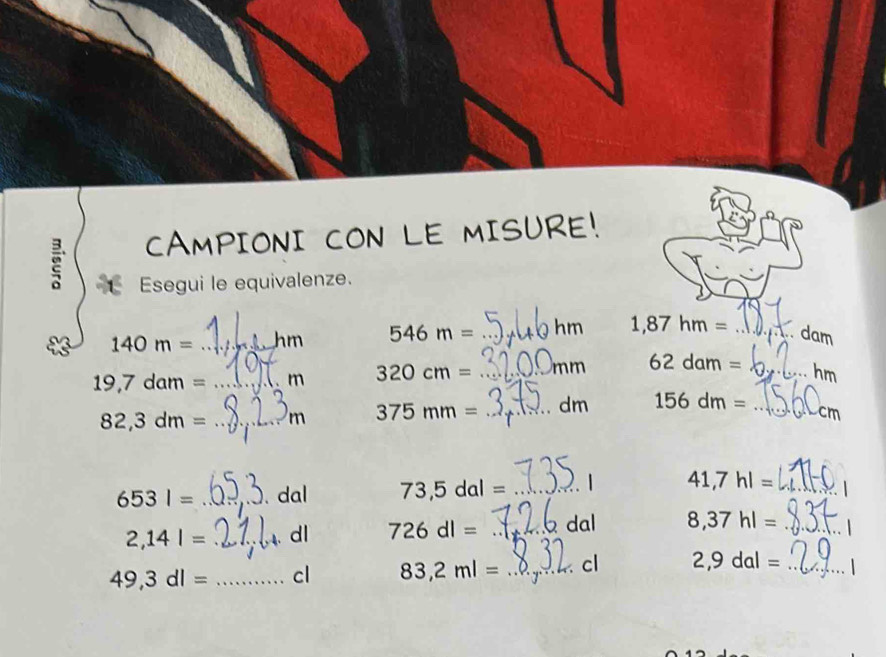 misura
CAMPIONI CON LE MISURE!
1 Esegui le equivalenze.
140 m = 1,4 hm
546 m = 5,46 hm
1,87 hm = 18,7 dam
19,7 dam = 197 m
320 cm = 3200 mm
62 dam = 6,2 hm
82,3 dm = 8,23 m
375 mm = 3,75 dm
156 dm = 1560 cm
653 l = 65,3 dal
73,5 dal = 735 l
41,7 hl = 4170 l
2,14 l = 21,4 dl
726 dl = 7,26 dal
8,37 hl = 837 l
49,3 dl = ........... cl
83,2 ml = 8,32 cl
2,9 dal = 29 l